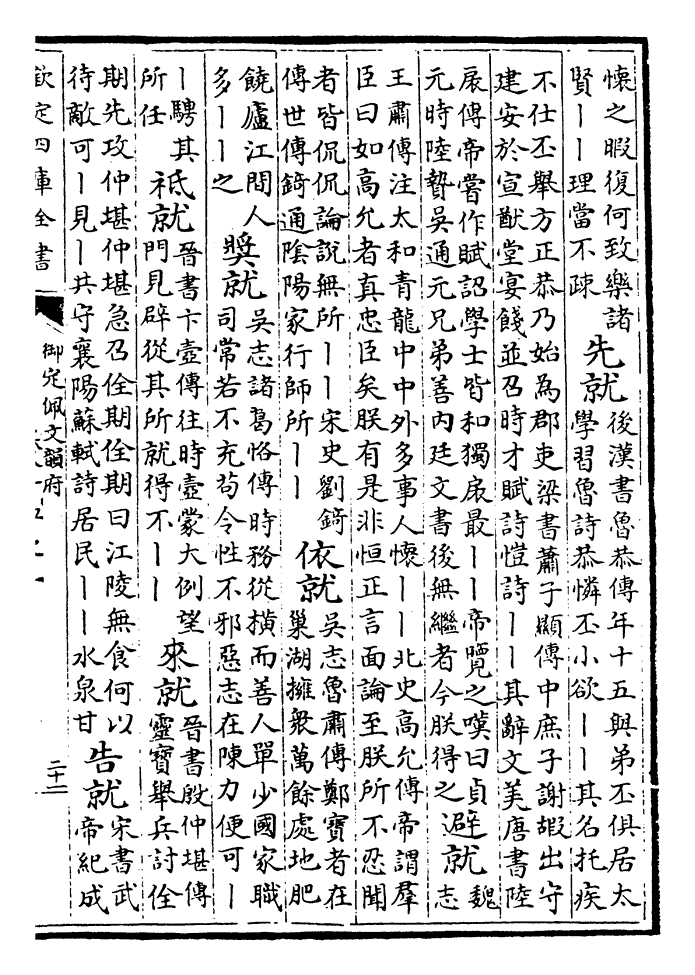 懷之暇復何致樂諸
賢丨丨理當不疎
先就
後漢書魯恭傳年十五與弟丕俱居太
學習魯詩恭憐丕小欲丨丨其名托疾
不仕丕舉方正恭乃始為郡吏梁書蕭子顯傳中庶子謝嘏出守
建安於宣猷堂宴餞並召時才賦詩愷詩丨丨其辭文美唐書陸
扆傳帝嘗作賦詔學士皆和獨扆最丨丨帝覽之嘆曰貞
元時陸贄吳通元兄弟善内廷文書後無繼者今朕得之
避就
魏
志
王肅傳注太和青龍中中外多事人懷丨丨北史高允傳帝謂羣
臣曰如高允者真忠臣矣朕有是非恒正言面論至朕所不忍聞
者皆侃侃論說無所丨丨宋史劉錡
傳世傳錡通陰陽家行師所丨丨
依就
吳志魯肅傳鄭寶者在
巢湖擁衆萬餘處地肥
饒廬江間人
多丨丨之
獎就
吳志諸葛恪傳時務從橫而善人單少國家職
司常若不充苟令性不邪惡志在陳力便可丨
丨騁其
所任
祗就
晉書卞壼傳往時壼蒙大例望
門見辟從其所就得不丨丨
來就
晉書殷仲堪傳
靈寶舉兵討佺
期先攻仲堪仲堪急召佺期佺期曰江陵無食何以
待敵可丨見丨共守襄陽蘇軾詩居民丨丨水泉甘
告就
宋書武
帝紀成
欽定四庫全書
御定佩文韻府
二十二